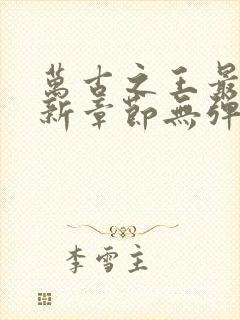 萬古之王最
新章節無彈
李雪主